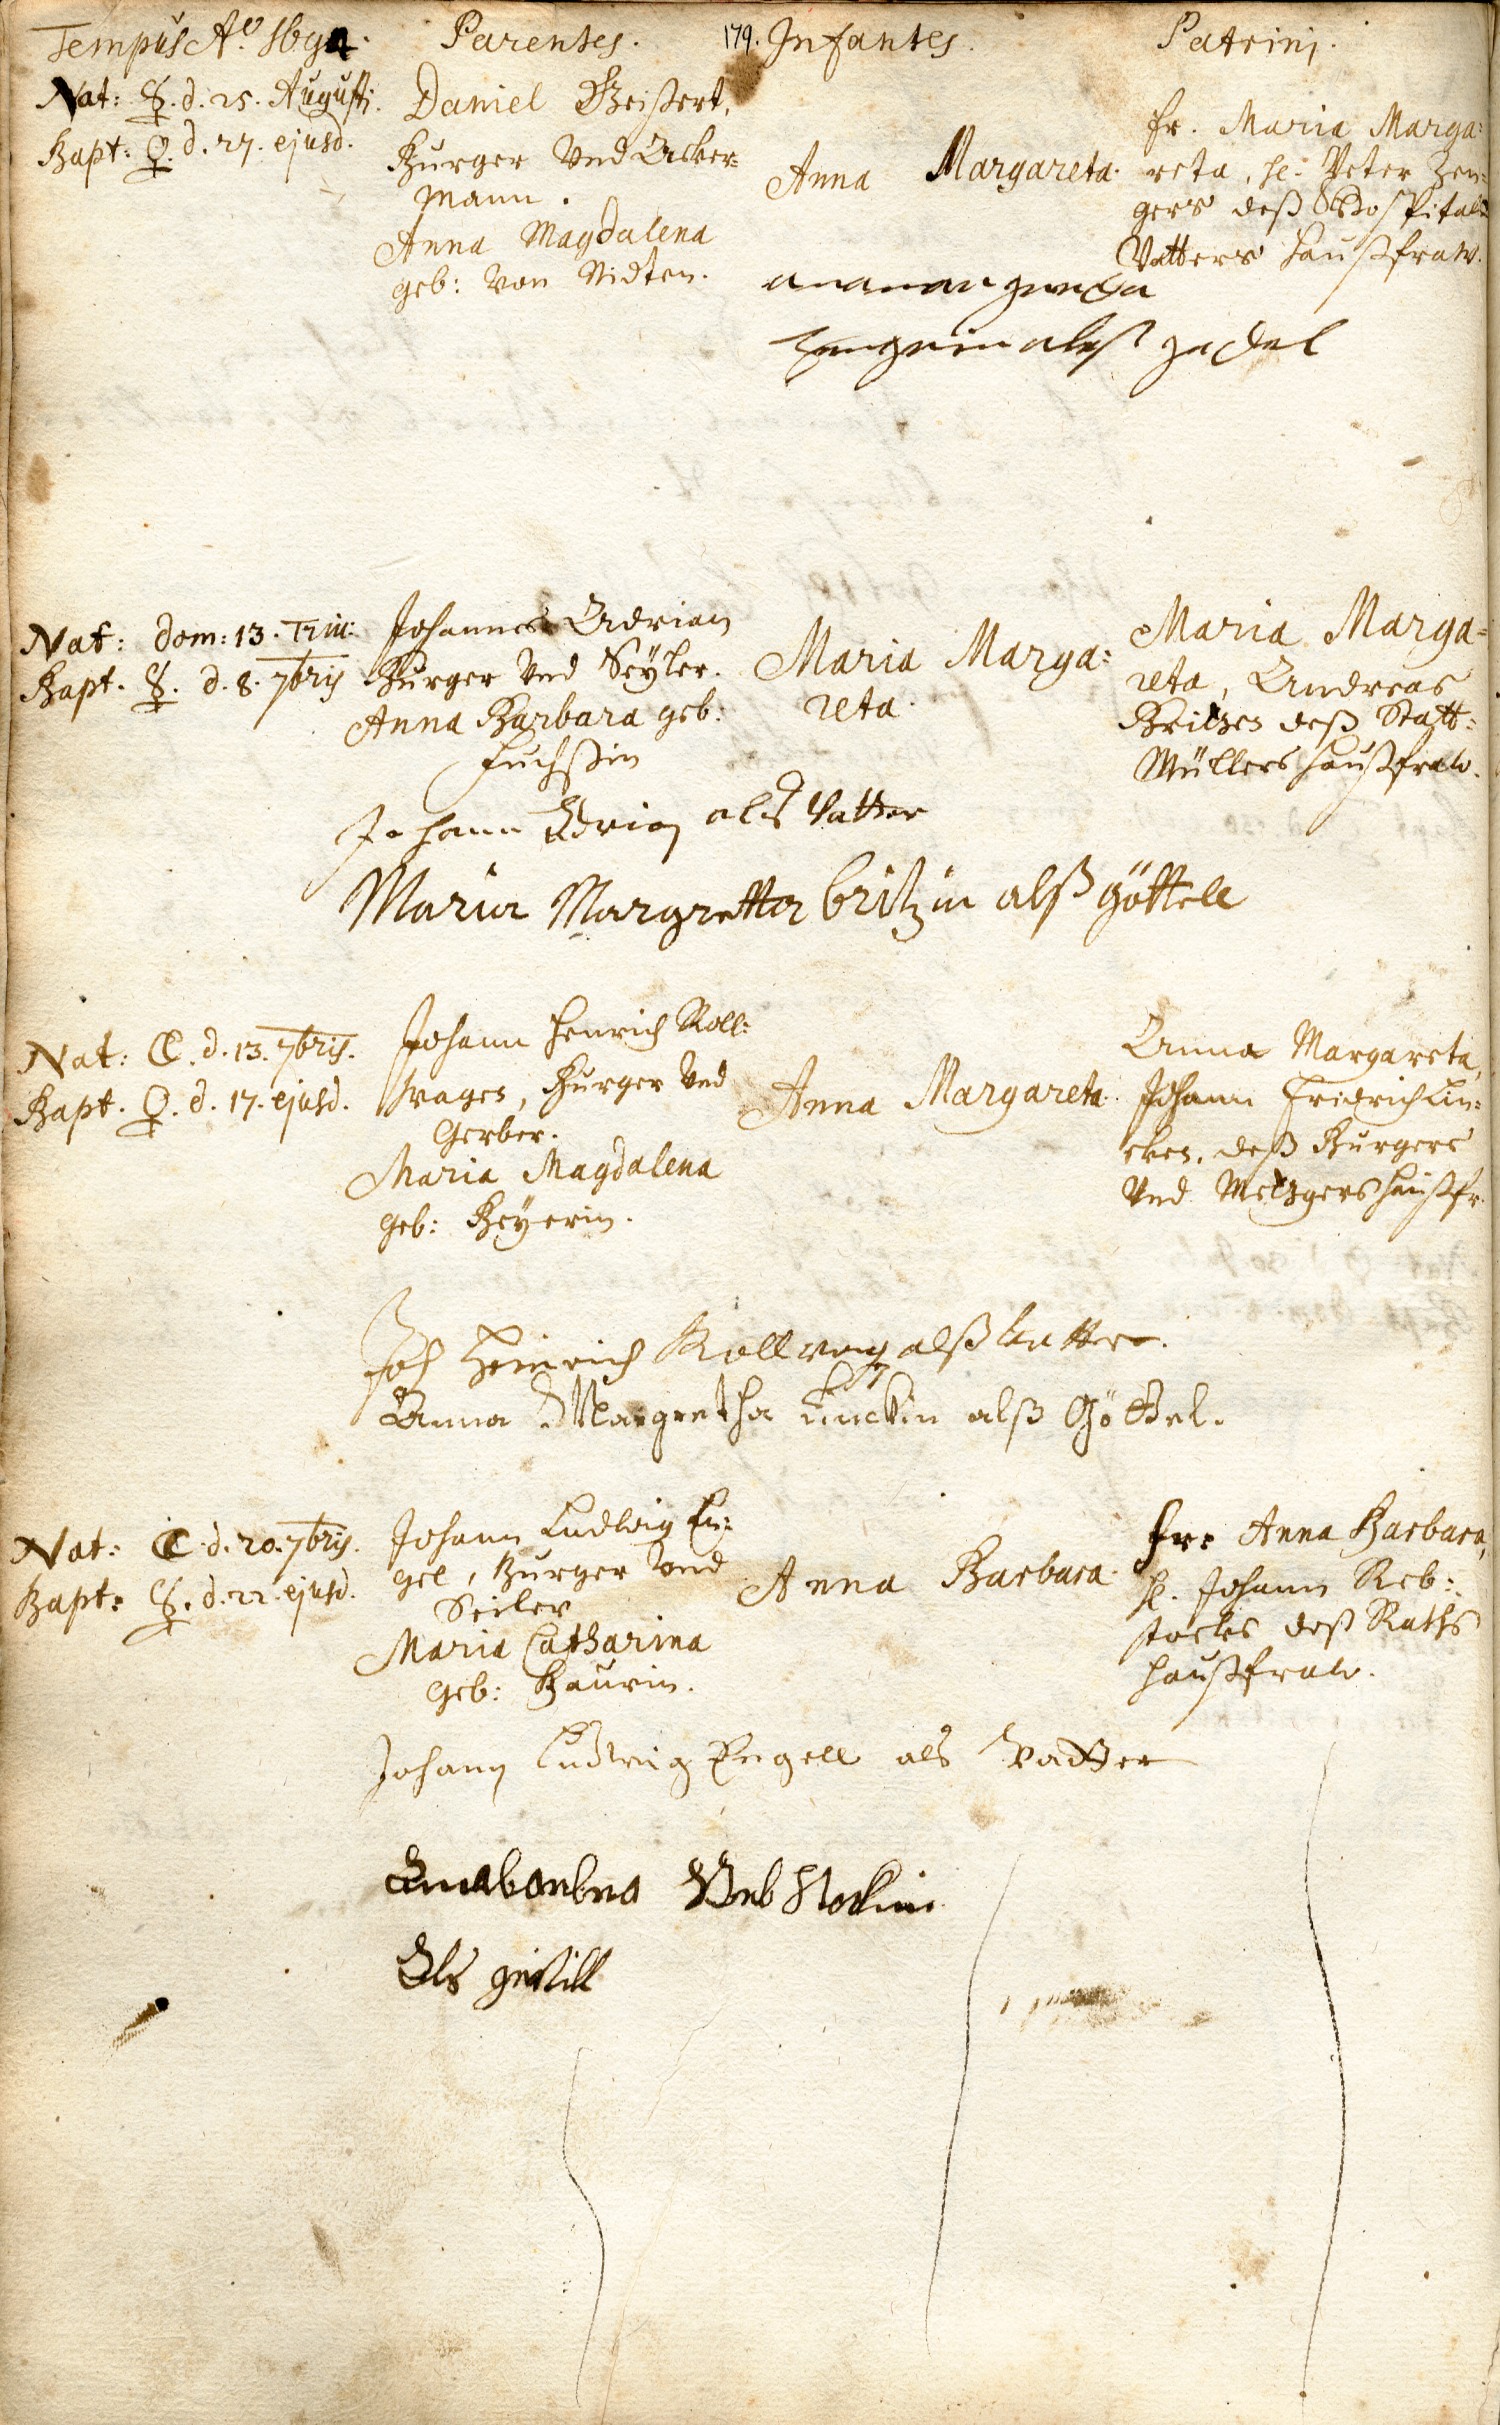 Tempus Aº 1694. Parentes. 179. Infantes. Patrini.
Nat: ☿. d. 25. Augusti.
Bapt: ♀. d. 27. ejusd.
Daniel Geißert,
Burger Und Acker-
mann.
Anna Magdalena
geb: Von Nidten.
Anna Margareta.
fr. Maria Marga-
reta, H. Peter Zen-
gers deß Hospital
Vatters haußfraw.
anamargreda
Zengerin alß gedel
Nat: Dom: 13. Trin:
Bapt. ☿. d. 8. 7bris
Johannes Adrian
Burger Und Seyler.
Anna Barbara geb:
Fuchßin
Maria Marga:
reta.
Maria Marga-
reta, Andreas
Britzen deß Statt-
Müllers haußfraw.
Johann Adrian als Vatter
Maria Margretta britzin alß göttell
Nat: ☾. d. 13. 7bris.
Bapt. ♀. d. 17. ejusd.
Johann Henrich Roll:
wagen, Burger Und
Gerber.
Maria Magdalena
geb: Beyerin.
Anna Margareta.
Anna Margareta,
Johann Fridrich Lin-
cken, deß Burgers
Und Metzgers haußfr.
Joh Heinrich Rollwag alß vatter.
Anna Margretha Linckin alß Göttel.
Nat: ☾. d. 20. 7bris.
Bapt: ☿. d. 22. ejusd.
Johann Ludwig En:
gel, Burger Und
Seiler
Maria Catharina
geb: Baurin.
Anna Barbara.
fr: Anna Barbara,
H. Johann Reb-
stocks deß Raths
haußfraw.
Johann Ludwig Engell als Vatter
Annabarbra Rebstockin
Als gettill